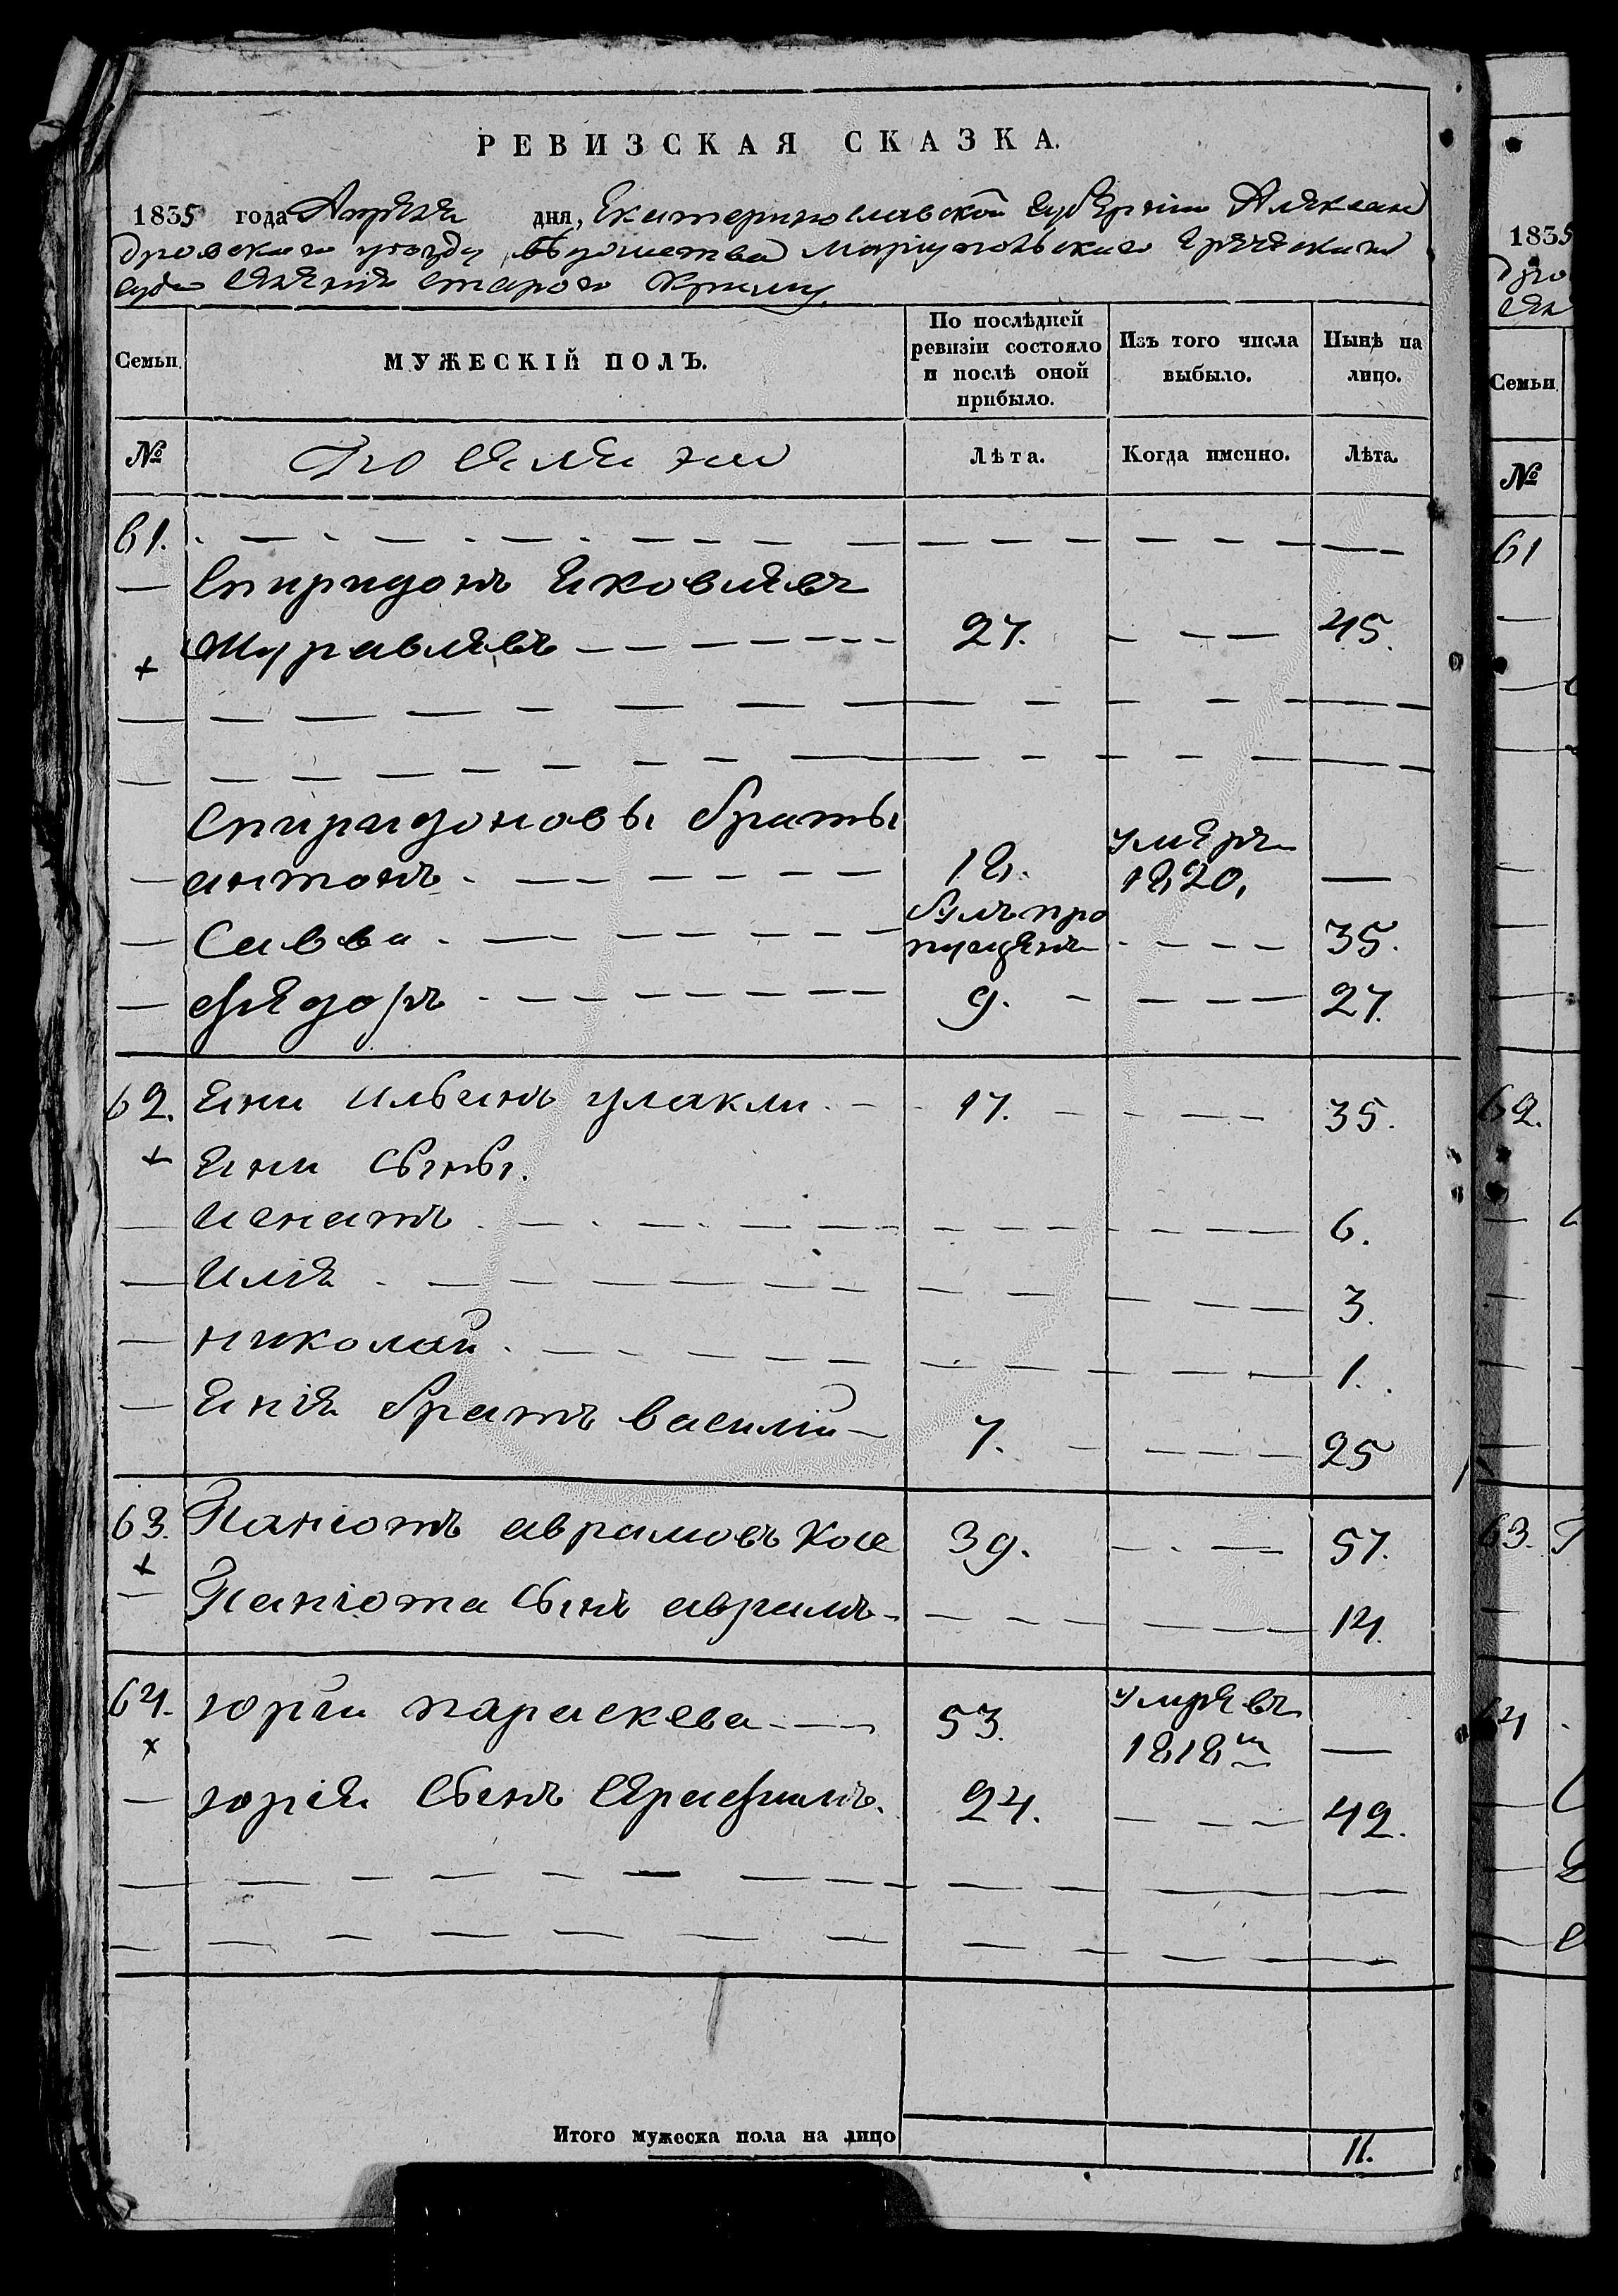 РЕВИЗСКАЯ СКАЗКА.
1835 года Апреля дня, Екатеринославской губерніи Алексан
дровскаго уезду ведомства Маріупольскаго греческаго
суда селенія Стараго Крыму
Семьи. МУЖЕСКІЙ ПОЛЪ. По послѣдней ревизіи состояло и послѣ оной прибыло. Изъ того числа выбыло. Нынѣ на лицо.
№ Поселяне Лѣта. Когда именно. Лѣта.
61.
Спиридонъ Яковлевъ
Журавлевъ 27. 45.
Спиридоновы браты
антонъ 18. умеръ 1820,
Савва былъ пропущенъ 35.
федоръ 9. 27.
62. Яни ильинъ улакли 17. 35.
Яни сыны.
игнатъ 6.
илія 3.
николай 1.
Янія братъ василій 7. 25
63. Паніотъ аврамовъ Кое 39. 57.
Паніота сынъ аврамъ 14.
64. юрій параскева 53. умре въ 1818м
юрія сынъ Серафимъ. 24. 42.
Итого мужеска пола на лицо 11.
1835
дро
сел
Семьи
№
61
62.
63. П
64